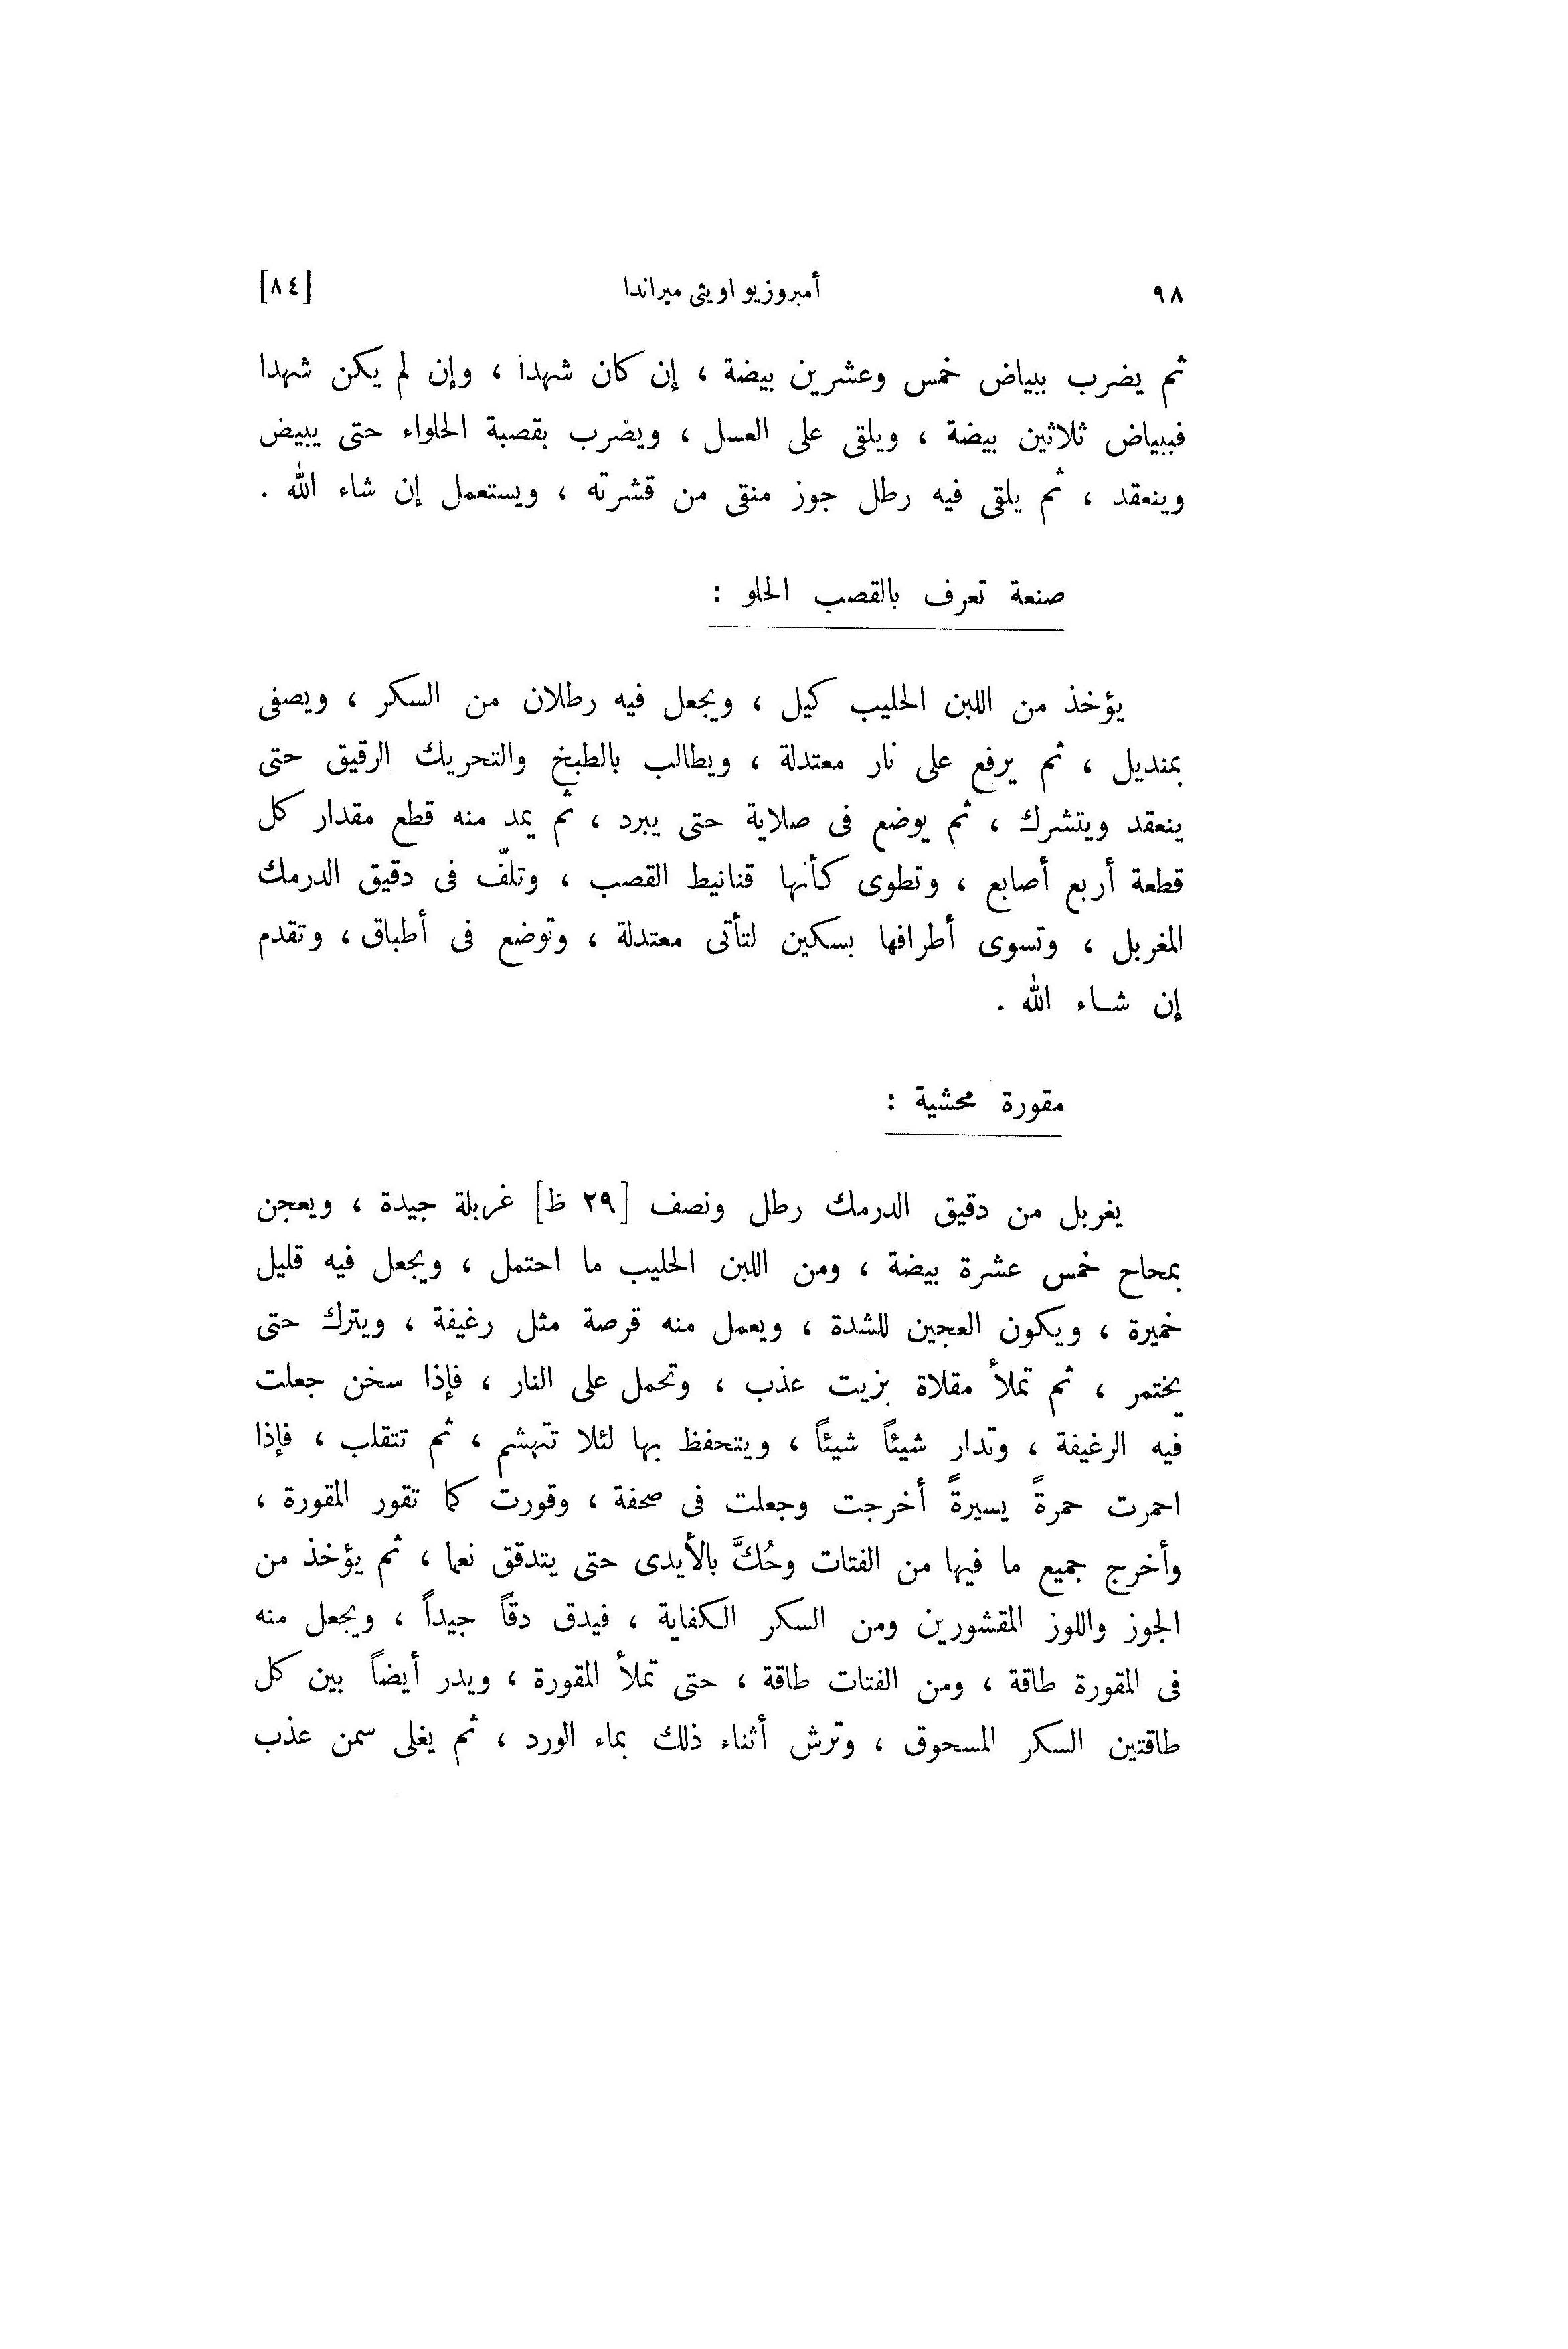 ٩٨ أمبروزيو اويثى ميراندا [٨٤]
ثم يضرب ببياض خمس وعشرين بيضة ، إن كان شهدا ، وإن لم يكن شهدا
فببياض ثلاثين بيضة ، ويلقى على العسل ، ويضرب بقصبة الحلواء حتى يبيض
وينعقد ، ثم يلقى فيه رطل جوز منقى من قشرته ، ويستعمل إن شاء الله .
صنعة تعرف بالقصب الحلو :
يؤخذ من اللبن الحليب كيل ، ويجعل فيه رطلان من السكر ، ويصفى
بمنديل ، ثم يرفع على نار معتدلة ، ويطالب بالطبخ والتحريك الرقيق حتى
ينعقد ويتشرك ، ثم يوضع فى صلاية حتى يبرد ، ثم يمد منه قطع مقدار كل
قطعة أربع أصابع ، وتطوى كأنها قنانيط القصب ، وتلفّ فى دقيق الدرمك
المغربل ، وتسوى أطرافها بسكين لتأتى معتدلة ، وتوضع فى أطباق ، وتقدم
إن شاء الله .
مقورة محشية :
يغربل من دقيق الدرمك رطل ونصف [٢٩ ظ] غربلة جيدة ، ويعجن
بمحاح خمس عشرة بيضة ، ومن اللبن الحليب ما احتمل ، ويجعل فيه قليل
خميرة ، ويكون العجين للشدة ، ويعمل منه قرصة مثل رغيفة ، ويترك حتى
يختمر ، ثم تملأ مقلاة بزيت عذب ، وتحمل على النار ، فإذا سخن جعلت
فيه الرغيفة ، وتدار شيئاً شيئاً ، ويتحفظ بها لئلا تتهشم ، ثم تتقلب ، فإذا
احمرت حمرةً يسيرةً أخرجت وجعلت فى صحفة ، وقورت كما تقور المقورة ،
وأخرج جميع ما فيها من الفتات وحُكَّ بالأيدى حتى يتدقق نعما ، ثم يؤخذ من
الجوز واللوز المقشورين ومن السكر الكفاية ، فيدق دقاً جيداً ، ويجعل منه
فى المقورة طاقة ، ومن الفتات طاقة ، حتى تملأ المقورة ، ويدر أيضاً بين كل
طاقتين السكر المسحوق ، وترش أثناء ذلك بماء الورد ، ثم يغلى سمن عذب